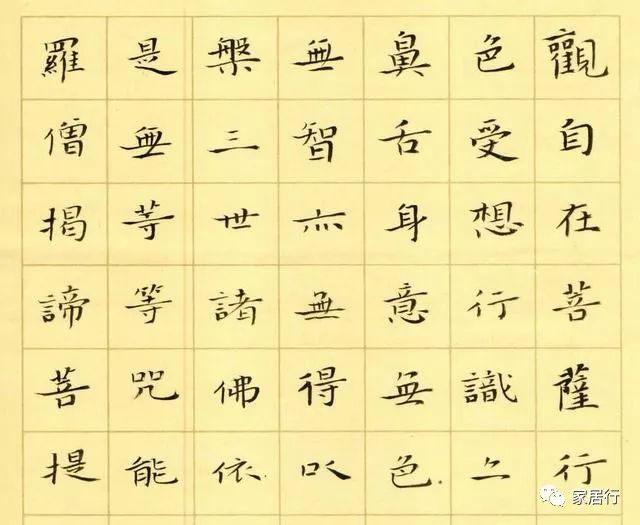 觀自在菩薩行
色受想行識亦
鼻舌身意無色
無智亦無得以
槃三世諸佛依
是無等等咒能
羅僧揭諦菩提
家居行